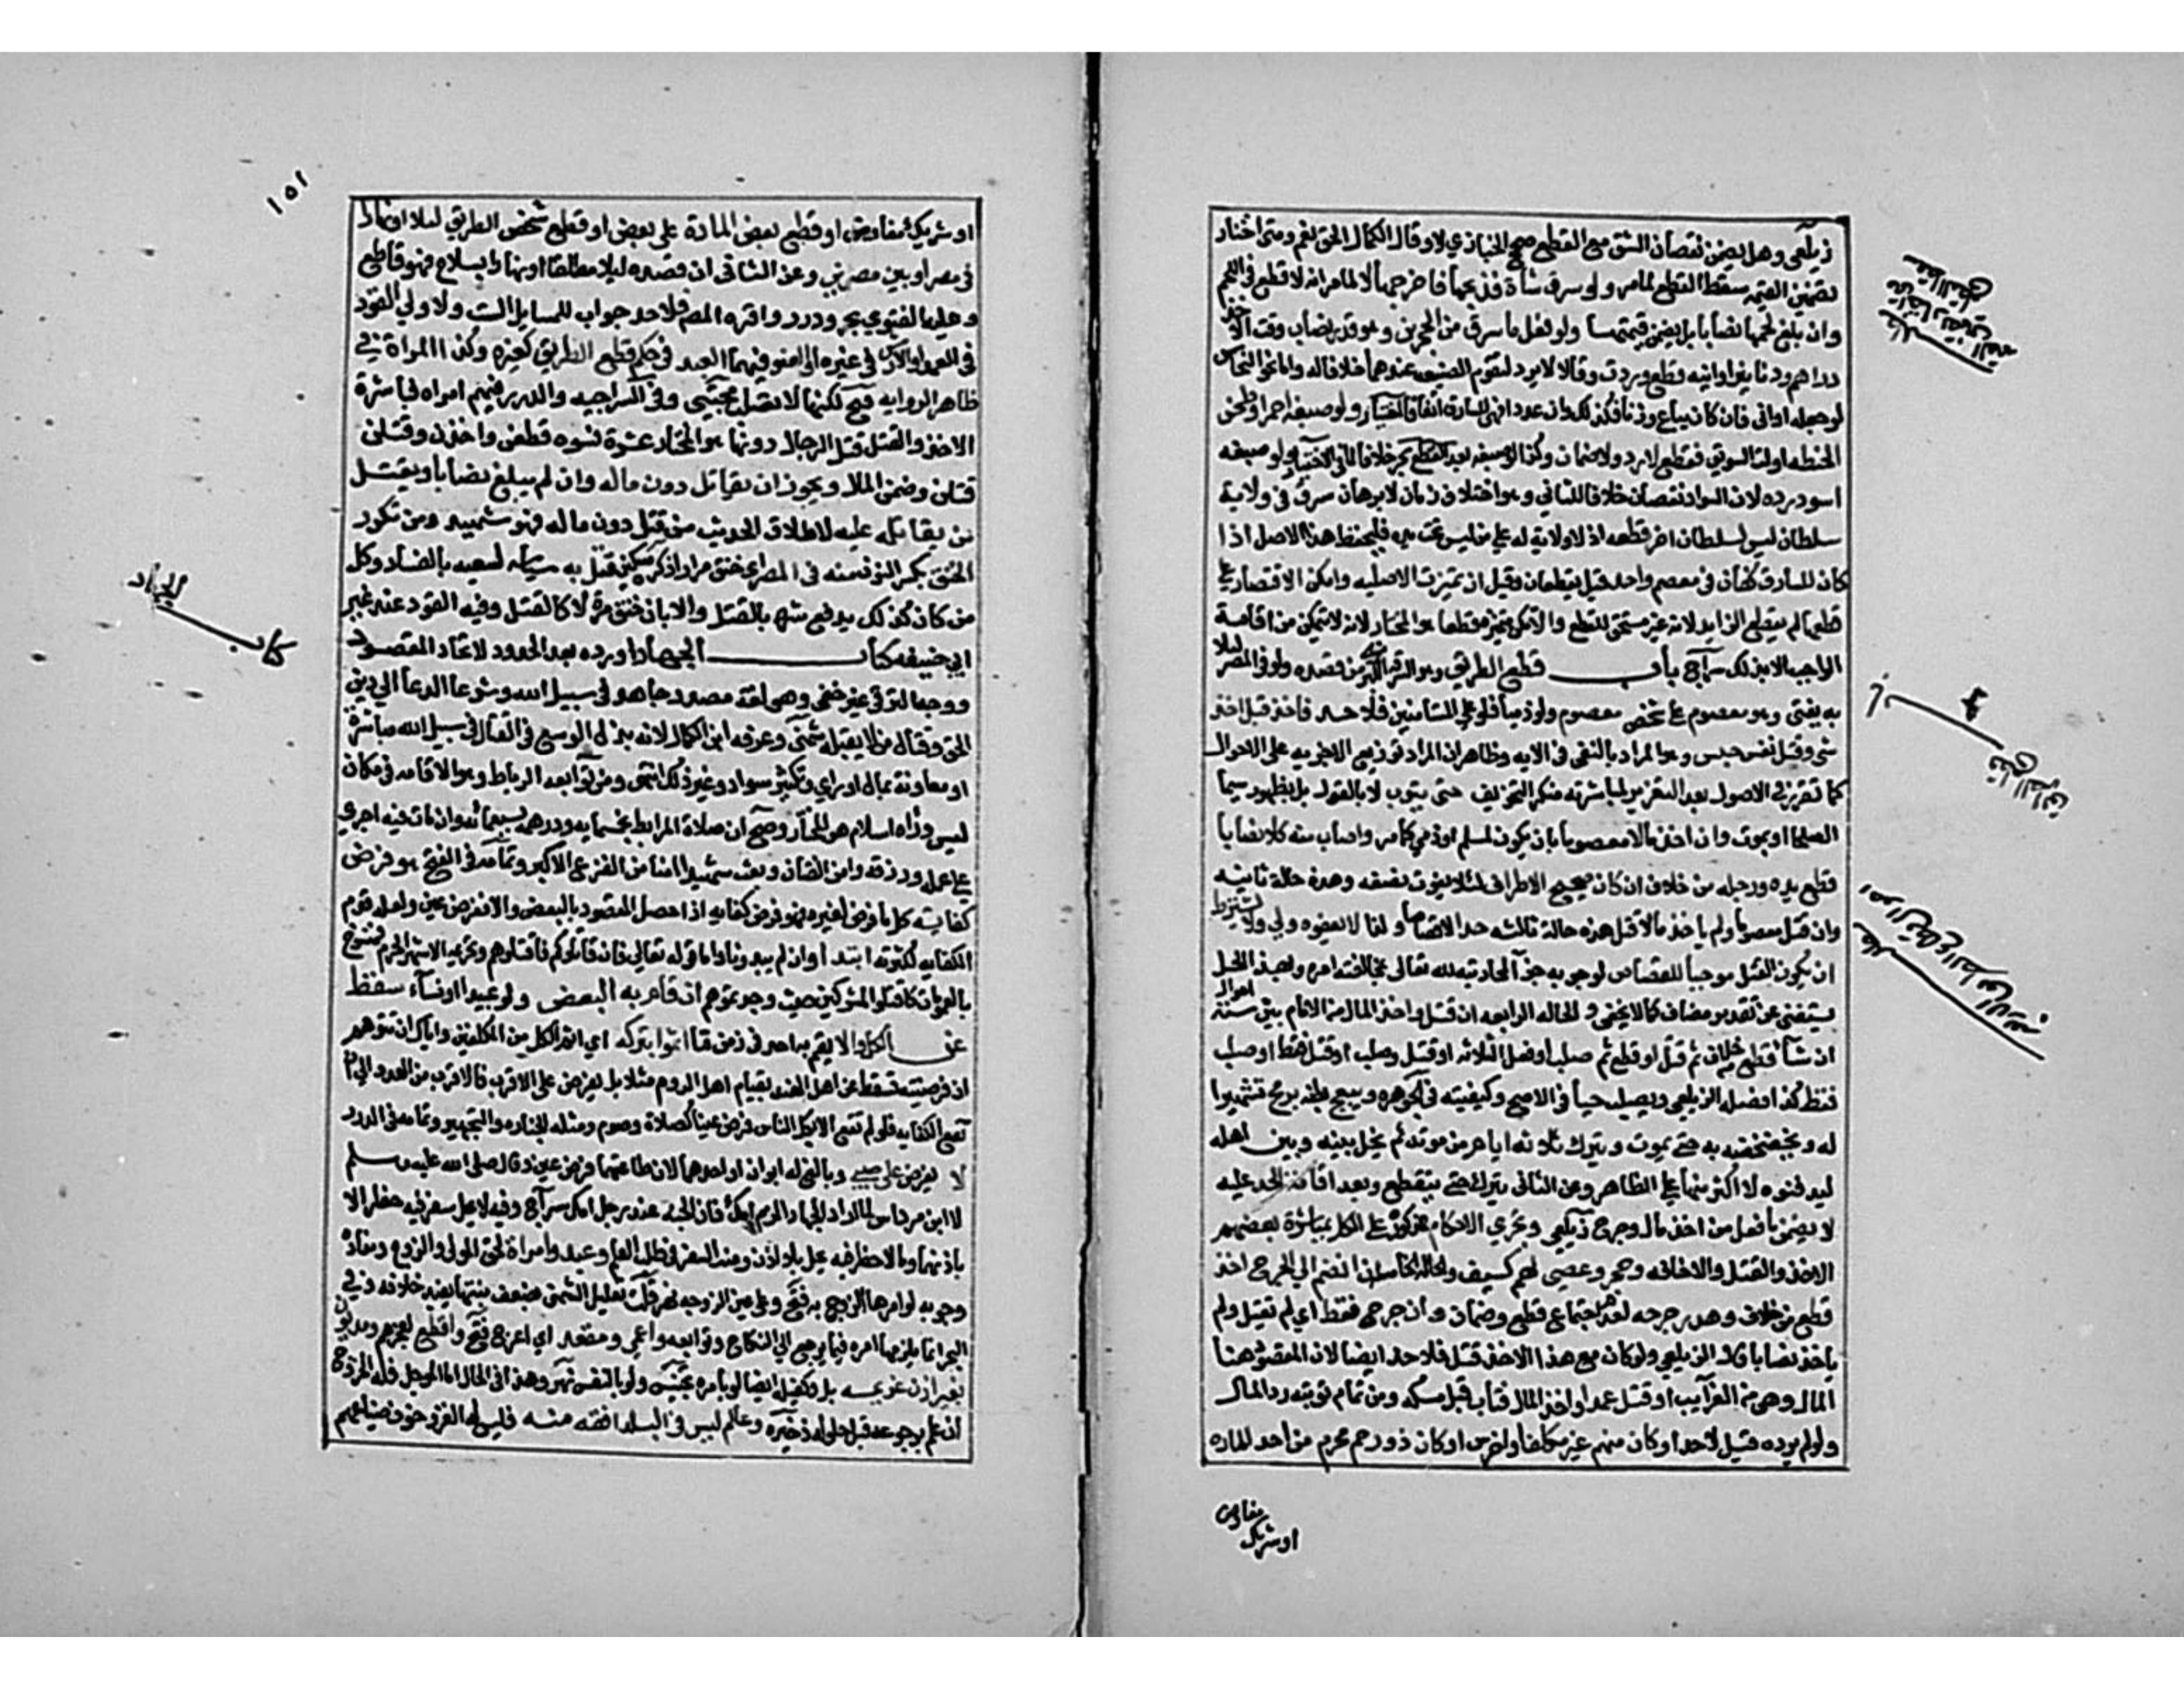 زيلعي وهل يضمن نقصان الشق مع القطع صحح الخبازي لا وقال الكمال الحق نعم ومتى اختار
تضمين القيمة سقط القطع لما مر ولو سرق شاة فذبحها فاخرجها لا لما مر انه لا قطع في اللحم
وان بلغ لحمها نصابا بل يضمن قيمتها ولو فعل ما سرق من الحجرين وهو قدر نصاب وقت الاخذ
دراهم ودنانير او انيه قطع وردت وقالا لا يرد لتقوم الصنعة عندهما خلافا له واما نحو النحاس
لو جعله اواني فان كان يباع وزنا فكذلك وان عددا فهي للسارق اتفاقا اختيار ولو صبغه احمر او طحن
الحنطه او لت السويق فقطع لا رد ولا ضمان وكذا لو صبغه بعد القطع بحر خلافا لما في الاختيار ولو صبغه
اسود رده لان السواد نقصان خلافا للثاني وهو اختلاف زمان لا برهان سرق في ولاية
سلطان ليس لسلطان اخر قطعه اذ لا ولاية له على من ليس تحت يده فليحفظ هذا الاصل اذا
كان للسارق كفان في معصم واحد قيل يقطعان وقيل ان تميزت الاصليه وامكن الاقتصار على
قطعها لم يقطع الزايد لانه غير مستحق للقطع والا قطعا هو المختار لانه لا يتمكن من اقامة
الواجب الا بذلك سراج باب قطع الطريق وهو السرقة الكبرى من قصده ولو في المصر ليلا
به يفتى وهو معصوم على شخص معصوم ولو ذميا فلو على المستامنين فلا حد فاخذ قبل اخذ
شي وقتل نفس حبس وهو المراد بالنفي في الايه وظاهر ان المراد توزيع الاجزيه على الاحوال
كما تقرر في الاصول بعد التعزير لمباشرته منكر التخويف حتى يتوب لا بالقول بل بظهور سيما
الصلحا او يموت وان اخذ مالا معصوما بان يكون لمسلم او ذمي كما مر واصاب منه كلا نصابا
قطع يده ورجله من خلاف ان كان صحيح الاطراف لئلا يفوت نفسه وهذه حالة ثانيه
وان قتل معصوما ولم ياخذ مالا قتل هذه حالة ثالثه حدا لا قصاصا ولذا لا يعفوه ولي ولا يشترط
ان يكون القتل موجبا للقصاص لوجوبه جزآ لمحاربته لله تعالى بمخالفته امره وبهذا الحل
يستغنى عن تقدير مضاف كما لا يخفى والحاله الرابعه ان قتل واخذ المال خير الامام بين ستة احوال
ان شآ قطع من خلاف ثم قتل او قطع ثم صلب او فعل الثلاثه او قتل وصلب او قتل فقط او صلب
فقط كذا فصله الزيلعي ويصلب حيا في الاصح وكيفيته في الجوهره ويبعج بطنه برمح تشهيرا
له ويخضخضه به حتى يموت ويترك ثلاثة ايام من موته ثم يخلى بينه وبين اهله
ليدفنوه لا اكثر منها على الظاهر وعن الثاني يترك حتى يتقطع وبعد اقامة الحد عليه
لا يضمن ما فعل من اخذ مال وجرح زيلعي وتجري الاحكام المذكورة على الكل بمباشرة بعضهم
الاخذ والقتل والاخافه وحجر وعصى لهم كسيف والحاله الخامسه ان انضم الى الجرح اخذ
قطع من خلاف وهدر جرحه لعدم اجتماع قطع وضمان وان جرح فقط اي لم يقتل ولم
ياخذ نصابا قال الزيلعي ولو كان مع هذا الاخذ قتل فلا حد ايضا لان المقصود هنا
المال وهي من الغرايب او قتل عمدا واخذ المال فتاب قبل مسكه ومن تمام توبته رد المال
ولو لم يرده قيل لا حد او كان منهم غير مكلف او اخرس او كان ذو رحم محرم من احد الماره
او شريك
مفاوض
١٥١
او شريك مفاوض او قطع بعض المارة على بعض او قطع شخص الطريق ليلا او نهارا
في مصر او بين مصرين وعن الثاني ان قصده ليلا مطلقا او نهارا بسلاح فهو قاطع
وعليه الفتوى بحر ودرر واقره المصنف فلا حد جواب للمسايل الست ولا ولي القود
في العمد او الارش في غيره او العفو فيهما العبد في حكم قطع الطريق كغيره وكذا المراة في
ظاهر الروايه فتح لكنها لا تصلب مجتبى وفي السراجيه والدرر فيهم امراه فباشرة
الاخذ والقتل قتل الرجال دونها هو المختار عشرة نسوه قطعن واخذن وقتلن
قتلن وضمن المال ويجوز ان يقاتل دون ماله وان لم يبلغ نصابا ويقتل
من يقاتله عليه لاطلاق الحديث من قتل دون ماله فهو شهيد ومن تكرر
الخنق بكسر النون منه في المصر اي خنق مرارا ذكره مسكين قتل به سياسة لسعيه بالفساد وكل
من كان كذلك يدفع شره بالقتل والا بان خنق مرة لا كالقتل وفيه القود عند غير
ابي حنيفه كتاب الجهاد اورده بعد الحدود لاتحاد المقصود
ووجه الترقي غير خفي وهو لغة مصدر جاهد في سبيل الله وشرعا الدعا الى دين
الحق وقتال من لا يقبله شمني وعرفه ابن الكمال لانه بذل الوسع في القتال في سبيل الله مباشرة
او معاونة بمال او راي وتكثير سواد وغير ذلك انتهى ومن توابعه الرباط وهو الاقامه في مكان
ليس وراه اسلام هو المختار وصح ان صلاة المرابط بخمسمايه ودرهمه بسبعمائه وان مات فيه اجرى
عليه عمله ورزقه وامن الفتان وبعث شهيدا امنا من الفزع الاكبر وتمامه في الفتح هو فرض
كفاية كل ما فرض لغيره فهو فرض كفايه اذا حصل المقصود بالبعض والا ففرض عين ولعله قدم
الكفايه لكثرته ابتدآ وان لم يبدونا واما قوله تعالى فان قاتلوكم فاقتلوهم وتحريمه الاشهر الحرم منسوخ
بالعمومات كاقتلوا المشركين حيث وجدتموهم ان قام به البعض ولو عبيدا او نسآء سقط
عن الكل والا يقم به احد في زمن ما اثموا بتركه اي اثم الكل من المكلفين واياك ان تتوهم
ان فرضيته تسقط عن اهل الهند بقيام اهل الروم مثلا بل يفرض على الاقرب فالاقرب من العدو الى ان
تقع الكفايه فلو لم تقع الا بكل الناس فرض عينا كصلاة وصوم ومثله الجنازه والتجهيز وتمامه في الدرر
لا يفرض على صبي وبالغ له ابوان او احدهما لان طاعتهما فرض عين وقال صلى الله عليه وسلم
لابن مرداس لما اراد الجهاد الزم امك فان الجنه عند رجل امك سراج وفيه لا يحل سفر فيه خطر الا
باذنهما وما لا خطر فيه يحل بلا اذن ومنه السفر في طلب العلم وعبد وامراة لحق المولى والزوج ومفاده
وجوبه لو امرها الزوج به فتح وعلى غير الزوجه نهر قلت تعليل الشمني بضعف بنيتها يفيد خلافه وفي
البحر انما يلزمها امره فيما يرجع الى النكاح وتوابعه واعمى ومقعد اي اعرج فتح واقطع لعجزهم ومديون
بغير اذن غريمه بل وكفيله ايضا لو بامره تجنيس ولو بالنفس نهر وهذا في الحال اما المؤجل فله الخروج
ان علم برجوعه قبل حلوله ذخيره وعالم ليس في البلد افقه منه فليس له الغزو خوف ضياعهم
كتاب
الجهاد